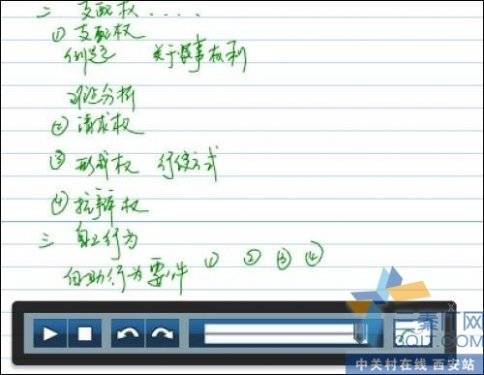 二 支配权 ....
① 支配权
例题 关于民事权利
理论分析
② 请求权
③ 形成权 行使方式
④ 抗辩权
三 自力行为
自助行为要件 ① ② ③ ④
三秦IT网
3QIT.COM
中关村在线 西安站